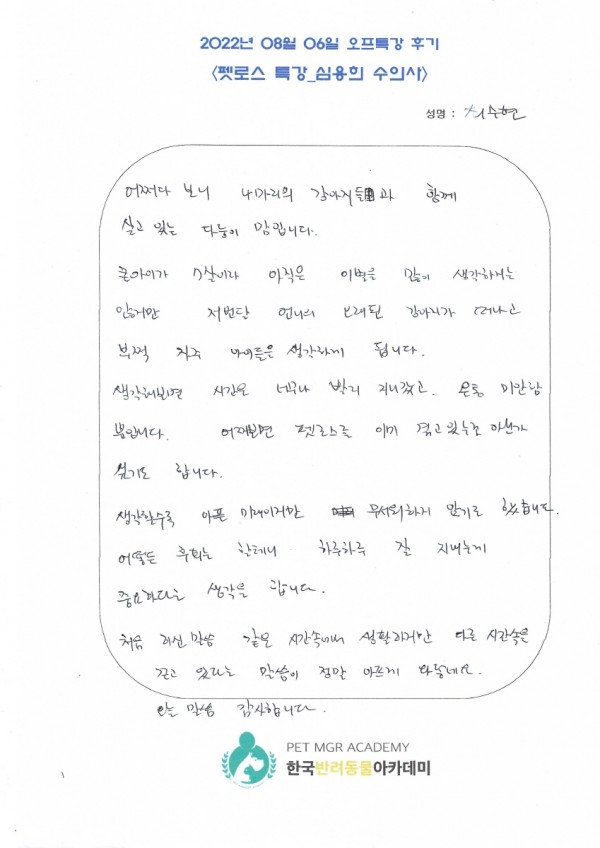 2022년 08월 06일 오프특강 후기
<펫로스 특강_심용희 수의사>
성명 : 최수현
어쩌다 보니 네마리의 강아지들과 함께
살고 있는 다둥이 맘입니다.
큰아이가 7살이라 아직은 이별을 많이 생각하지는
않지만 저번달 언니의 오래된 강아지가 떠나고
부쩍 자주 아이들을 생각하게 됩니다.
생각해보면 시간은 너무나 빨리 지나갔고. 온통 미안함
뿐입니다. 어쩌보면 펫로스를 이미 겪고 있는 아닌가
싶기도 합니다.
생각할수록 아픈 미래이지만 무서워하지 않기로 했습니다.
어떻든 후회는 할테니 하루하루 잘 지내는게
중요하다는 생각을 합니다.
처음 하신 말씀 같은 시간속에서 생활하지만 다른 시간속을
걷고 있다는 말씀이 정말 아프게 와닿네요.
오늘 말씀 감사합니다.
PET MGR ACADEMY
한국반려동물아카데미